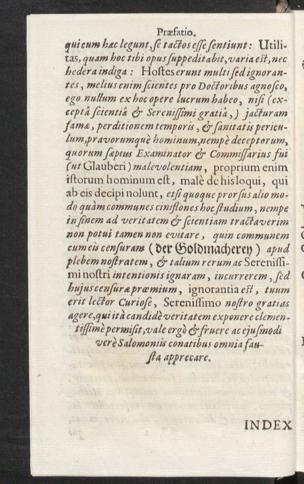 Præfatio.
qui eum hæc legunt, se tactos esse sentiunt: Utili-
tas, quam hoc tibi opus suppeditabit, varia est, nec
hedera indiga: Hostes erunt multi sed ignoran-
tes, melius enim scientes pro Doctoribus agnosco,
ego nullum ex hoc opere lucrum habeo, nisi (ex-
ceptâ scientiâ & Serenissimi gratiâ,) jacturam
famæ, perditionem temporis, & sanitatis pericu-
lum, pravorumquè hominum, nempè deceptorum,
quorum sæpius Examinator & Commissarius fui
(ut Glauberi) malevolentiam, proprium enim
istorum hominum est, malè de his loqui, qui
ab eis decipi nolunt, etsi quoque prorsus alio mo-
do quàm communes ciniflones hoc studium, nempe
in finem ad veritatem & scientiam tractaverim
non potui tamen non evitare, quin communem
cum eis censuram (der Goldmacherey) apud
plebem nostratem, & talium rerum ac Serenissi-
mi nostri intentionis ignaram, incurrerem, sed
hujus censuræ præmium, ignorantia est, tuum
erit lector Curiose, Serenissimo nostro gratias
agere, qui ità candidè veritatem exponere clemen-
tissimè permisit, vale ergò & fruere ac ejusmodi
verè Salomoniis conatibus omnia fau-
sta apprecare.
INDEX